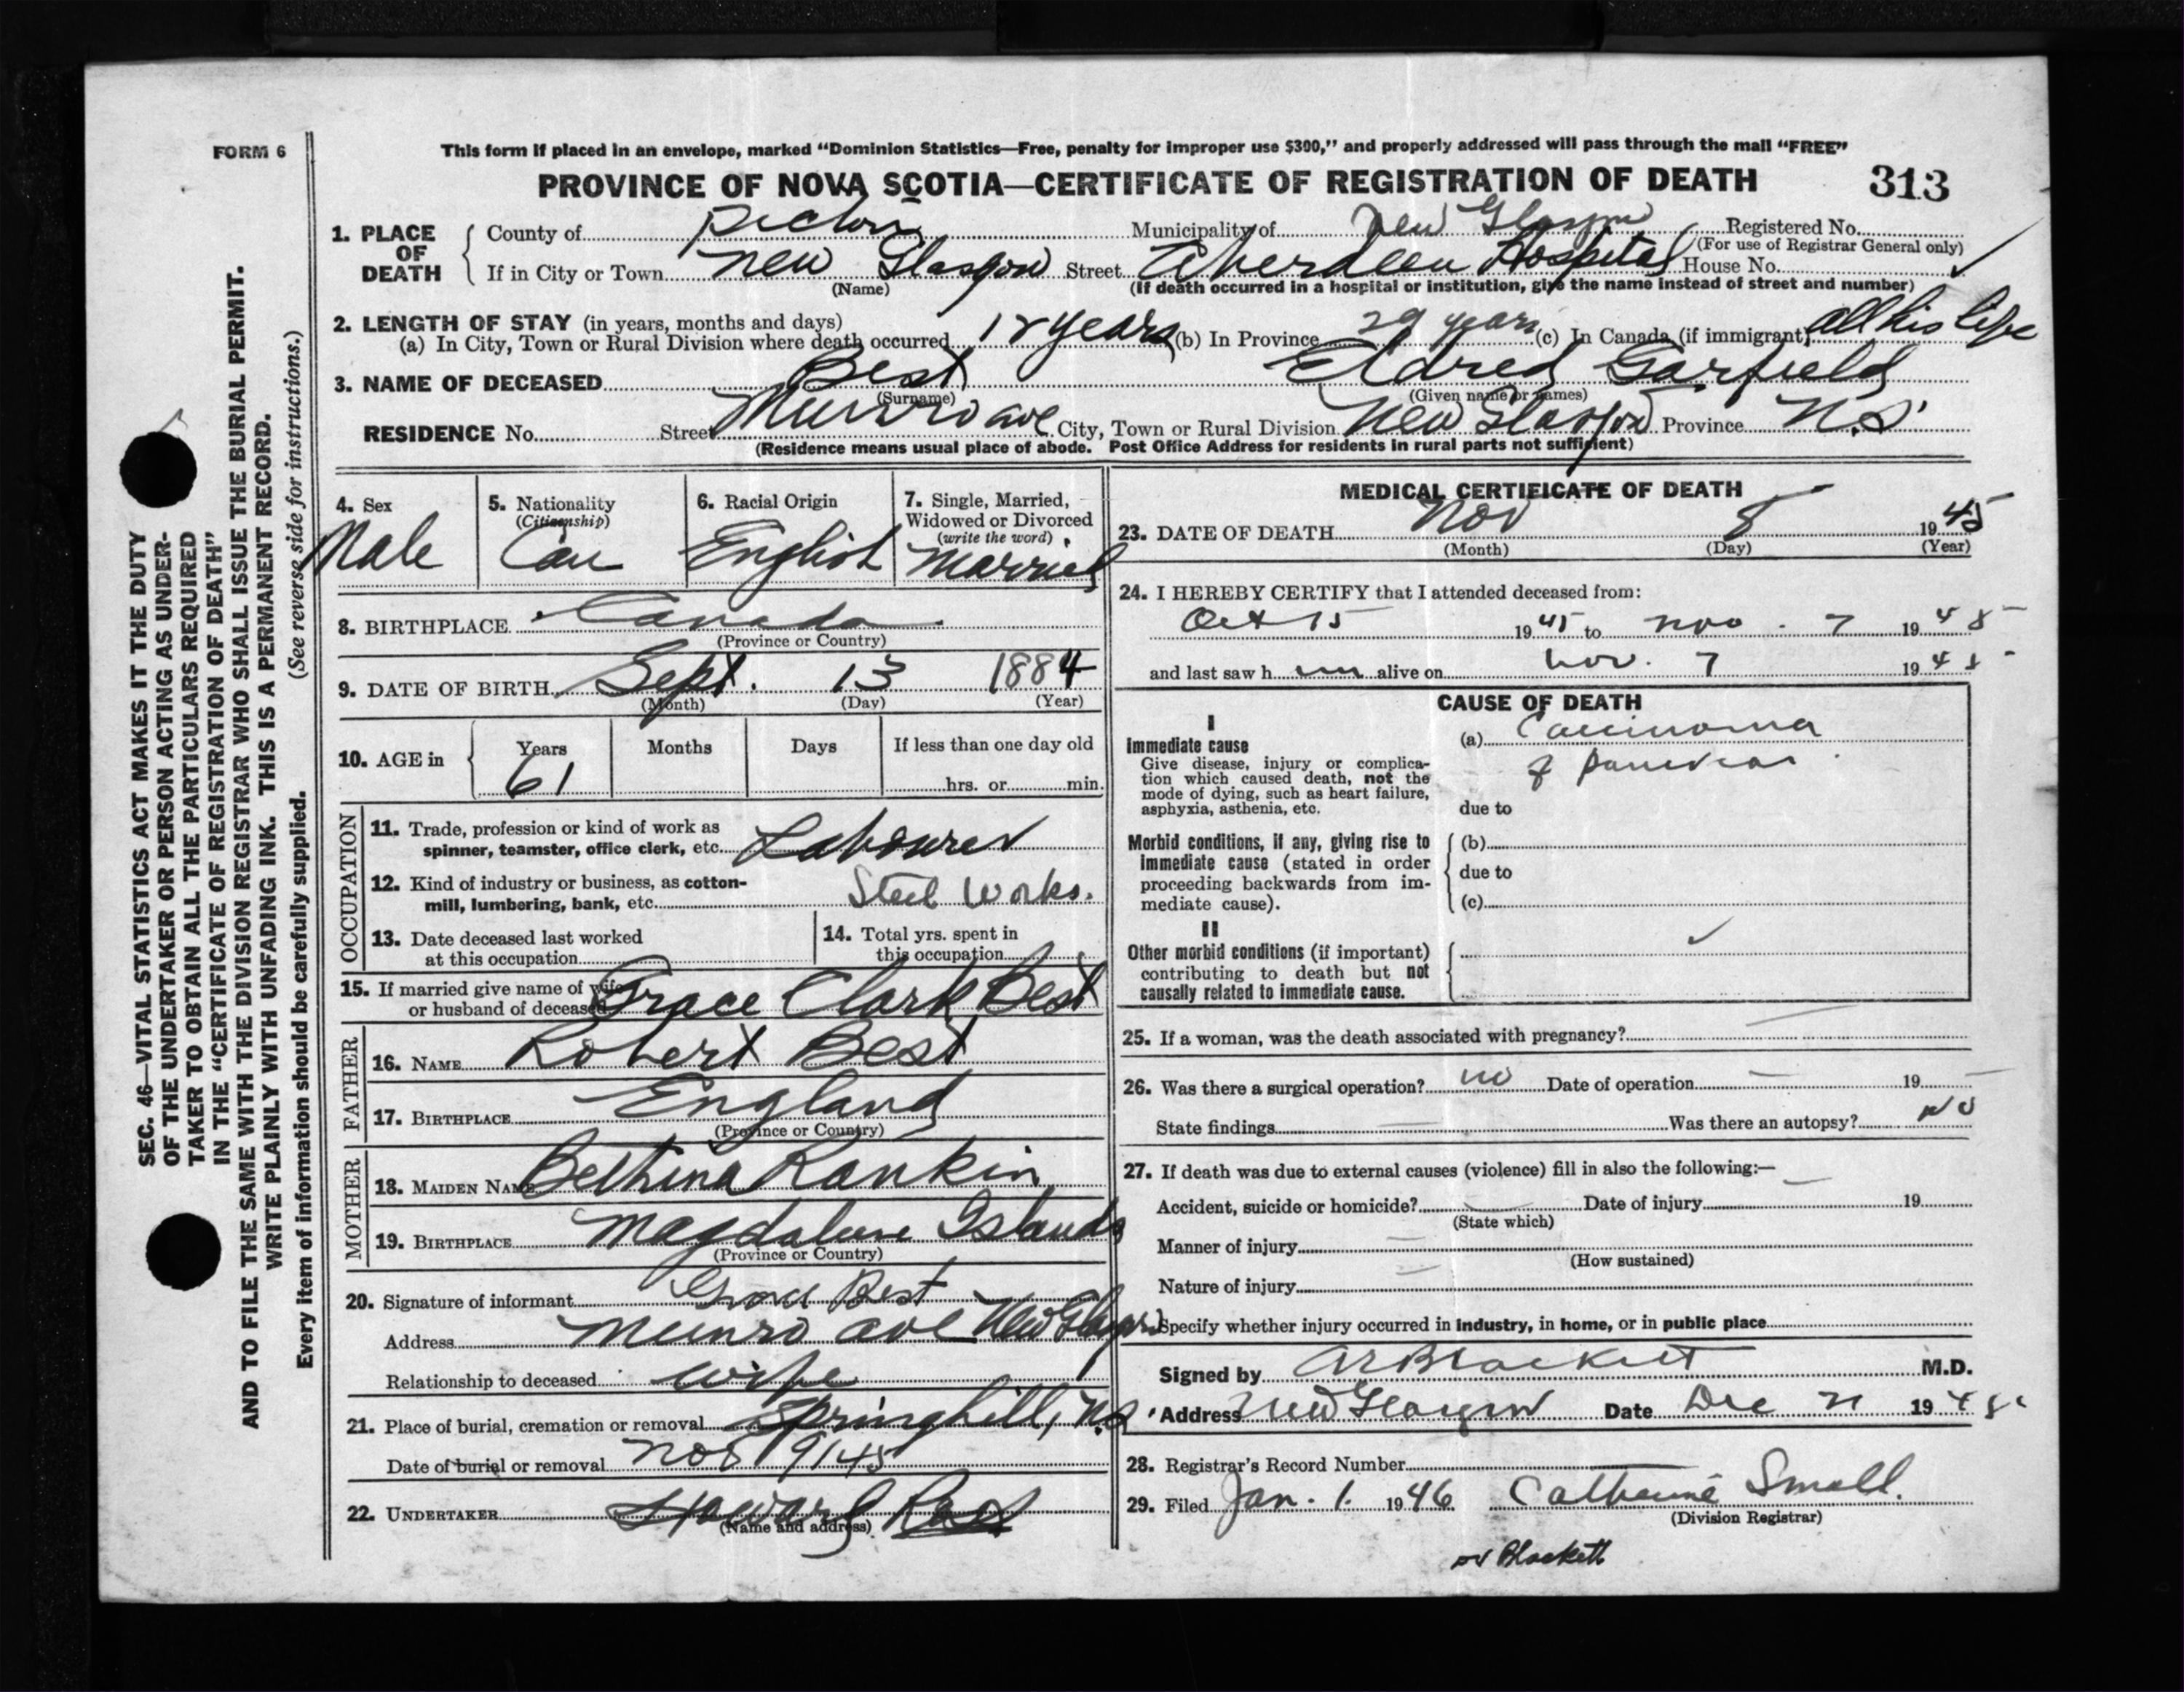 FORM 6
This form if placed in an envelope, marked “Dominion Statistics—Free, penalty for improper use $300,” and properly addressed will pass through the mail “FREE”
PROVINCE OF NOVA SCOTIA—CERTIFICATE OF REGISTRATION OF DEATH
313
1. PLACE OF DEATH
County of Pictou Municipality of New Glasgow Registered No.
(For use of Registrar General only)
If in City or Town New Glasgow Street Aberdeen Hospital House No.
(Name) (If death occurred in a hospital or institution, give the name instead of street and number)
2. LENGTH OF STAY (in years, months and days)
(a) In City, Town or Rural Division where death occurred years (b) In Province 29 years (c) In Canada (if immigrant) all his life
3. NAME OF DECEASED Best Eldred Garfield
(Surname) (Given name or names)
RESIDENCE No. Street Munro ave City, Town or Rural Division New Glasgow Province N.S.
(Residence means usual place of abode. Post Office Address for residents in rural parts not sufficient)
4. Sex
Male
5. Nationality
(Citizenship)
Can
6. Racial Origin
English
7. Single, Married,
Widowed or Divorced
(write the word)
Married
8. BIRTHPLACE Canada
(Province or Country)
9. DATE OF BIRTH Sept. 13 1884
(Month) (Day) (Year)
10. AGE in
Years Months Days If less than one day old
61 hrs. or min.
OCCUPATION
11. Trade, profession or kind of work as
spinner, teamster, office clerk, etc. Labourer
12. Kind of industry or business, as cotton-
mill, lumbering, bank, etc. Steel Works.
13. Date deceased last worked
at this occupation
14. Total yrs. spent in
this occupation
15. If married give name of wife
or husband of deceased Grace Clark Best
FATHER
16. NAME Robert Best
17. BIRTHPLACE England
(Province or Country)
MOTHER
18. MAIDEN NAME Bethina Rankin
19. BIRTHPLACE Magdalene Islands
(Province or Country)
20. Signature of informant Grace Best
Address Munro ave New Glasgow
Relationship to deceased wife
21. Place of burial, cremation or removal Springhill, N.S
Date of burial or removal Nov 9/45
22. UNDERTAKER Howard
(Name and address)
MEDICAL CERTIFICATE OF DEATH
23. DATE OF DEATH Nov 8 1945
(Month) (Day) (Year)
24. I HEREBY CERTIFY that I attended deceased from:
Oct 15 1945 to Nov. 7 1945
and last saw him alive on Nov. 7 1945
CAUSE OF DEATH
I
Immediate cause
Give disease, injury or complica-
tion which caused death, not the
mode of dying, such as heart failure,
asphyxia, asthenia, etc.
(a) Carcinoma
of pancreas
due to
Morbid conditions, if any, giving rise to
immediate cause (stated in order
proceeding backwards from im-
mediate cause).
(b)
due to
(c)
II
Other morbid conditions (if important)
contributing to death but not
causally related to immediate cause.
25. If a woman, was the death associated with pregnancy?
26. Was there a surgical operation? no Date of operation 19
State findings Was there an autopsy? no
27. If death was due to external causes (violence) fill in also the following:—
Accident, suicide or homicide? Date of injury 19
(State which)
Manner of injury
(How sustained)
Nature of injury
Specify whether injury occurred in industry, in home, or in public place
Signed by Blackett M.D.
Address New Glasgow Date Dec 1945
28. Registrar's Record Number
29. Filed Jan. 1. 1946 Catherine Small.
(Division Registrar)
Blackett
SEC. 46—VITAL STATISTICS ACT MAKES IT THE DUTY
OF THE UNDERTAKER OR PERSON ACTING AS UNDER-
TAKER TO OBTAIN ALL THE PARTICULARS REQUIRED
IN THE “CERTIFICATE OF REGISTRATION OF DEATH”
AND TO FILE THE SAME WITH THE DIVISION REGISTRAR WHO SHALL ISSUE THE BURIAL PERMIT.
WRITE PLAINLY WITH UNFADING INK. THIS IS A PERMANENT RECORD.
Every item of information should be carefully supplied. (See reverse side for instructions.)